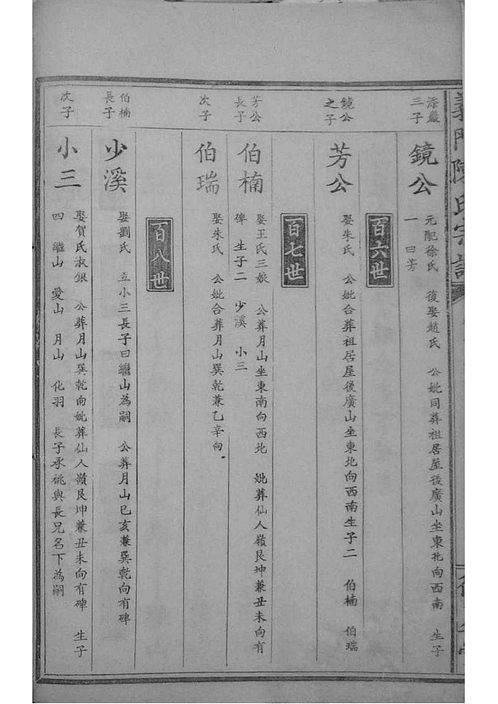 義門陳氏宗譜
三子
鏡公
元配徐氏 復娶趙氏 公妣同葬祖居屋後廣山坐東北向西南 生子
一 曰芳
百六世
鏡公
之子
芳公
娶朱氏 公妣合葬祖居屋後廣山坐東北向西南生子二 伯楠 伯瑞
百七世
芳公
長子
伯楠
娶王氏三娘 公葬月山坐東南向西北 妣葬仙人嶺艮坤兼丑未向有
碑 生子二 少溪 小三
次子
伯瑞
娶朱氏 公妣合葬月山巽乾兼乙辛向
百八世
伯楠
長子
少溪
娶劉氏 立小三長子曰繼山為嗣 公葬月山巳亥兼巽乾向有碑
次子
小三
娶賀氏淑銀 公葬月山巽乾向妣葬仙人嶺艮坤兼丑未向有碑 生子
四 繼山 愛山 月山 化羽 長子承祧與長兄名下為嗣